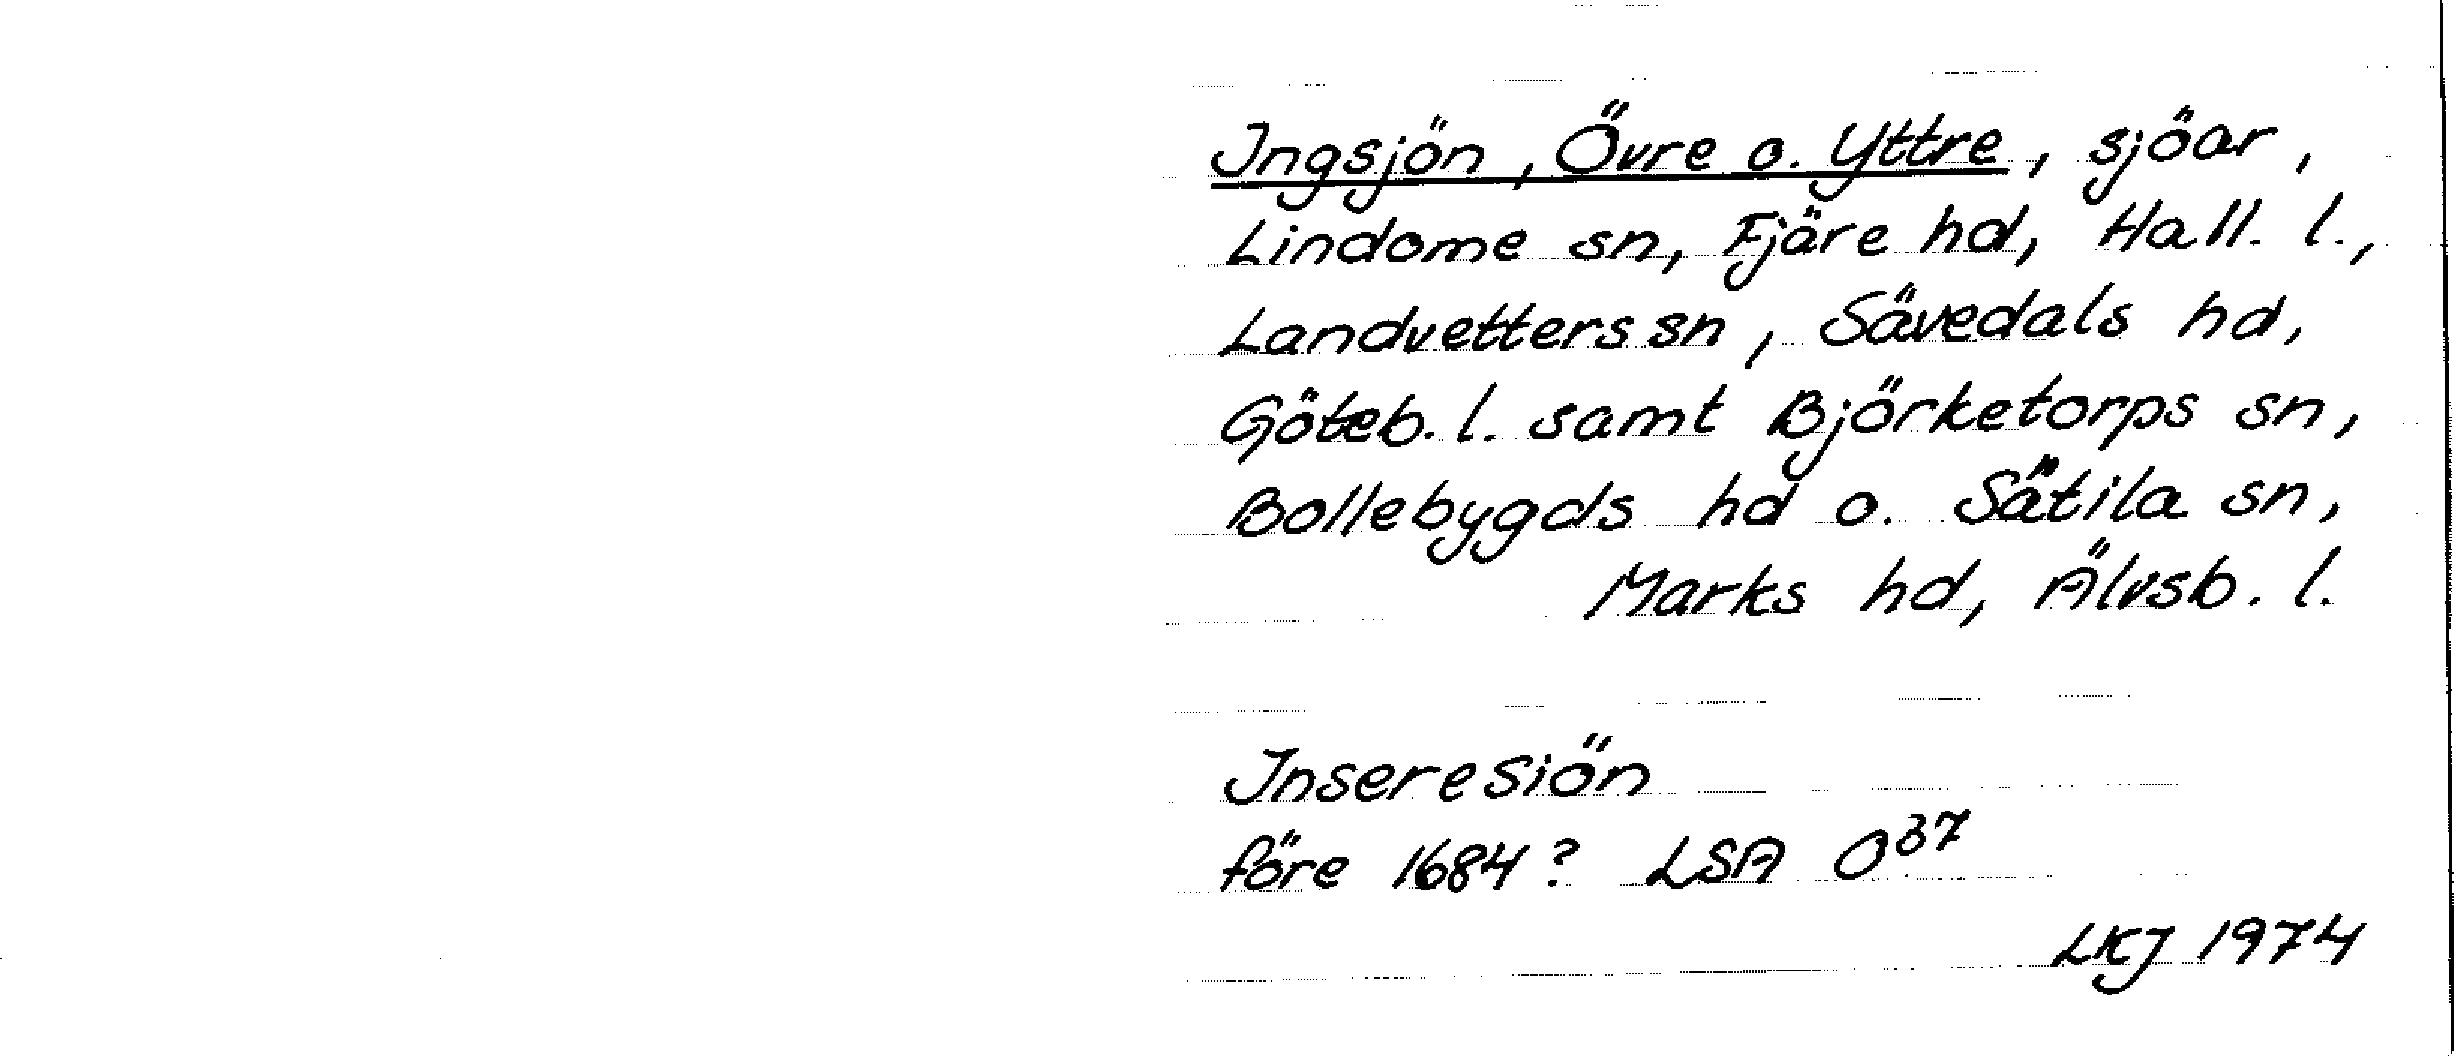 Ingsjön, Övre o. Yttre, sjöar,
Lindome sn, Fjäre hd, Hall. l.,
Landvetters sn, Sävedals hd,
Göteb. l. samt Björketorps sn,
Bollebygds hd o. Sätila sn,
Marks hd, Älvsb. l.
Inseresiön
före 1684? LSA O37
LKJ 1974